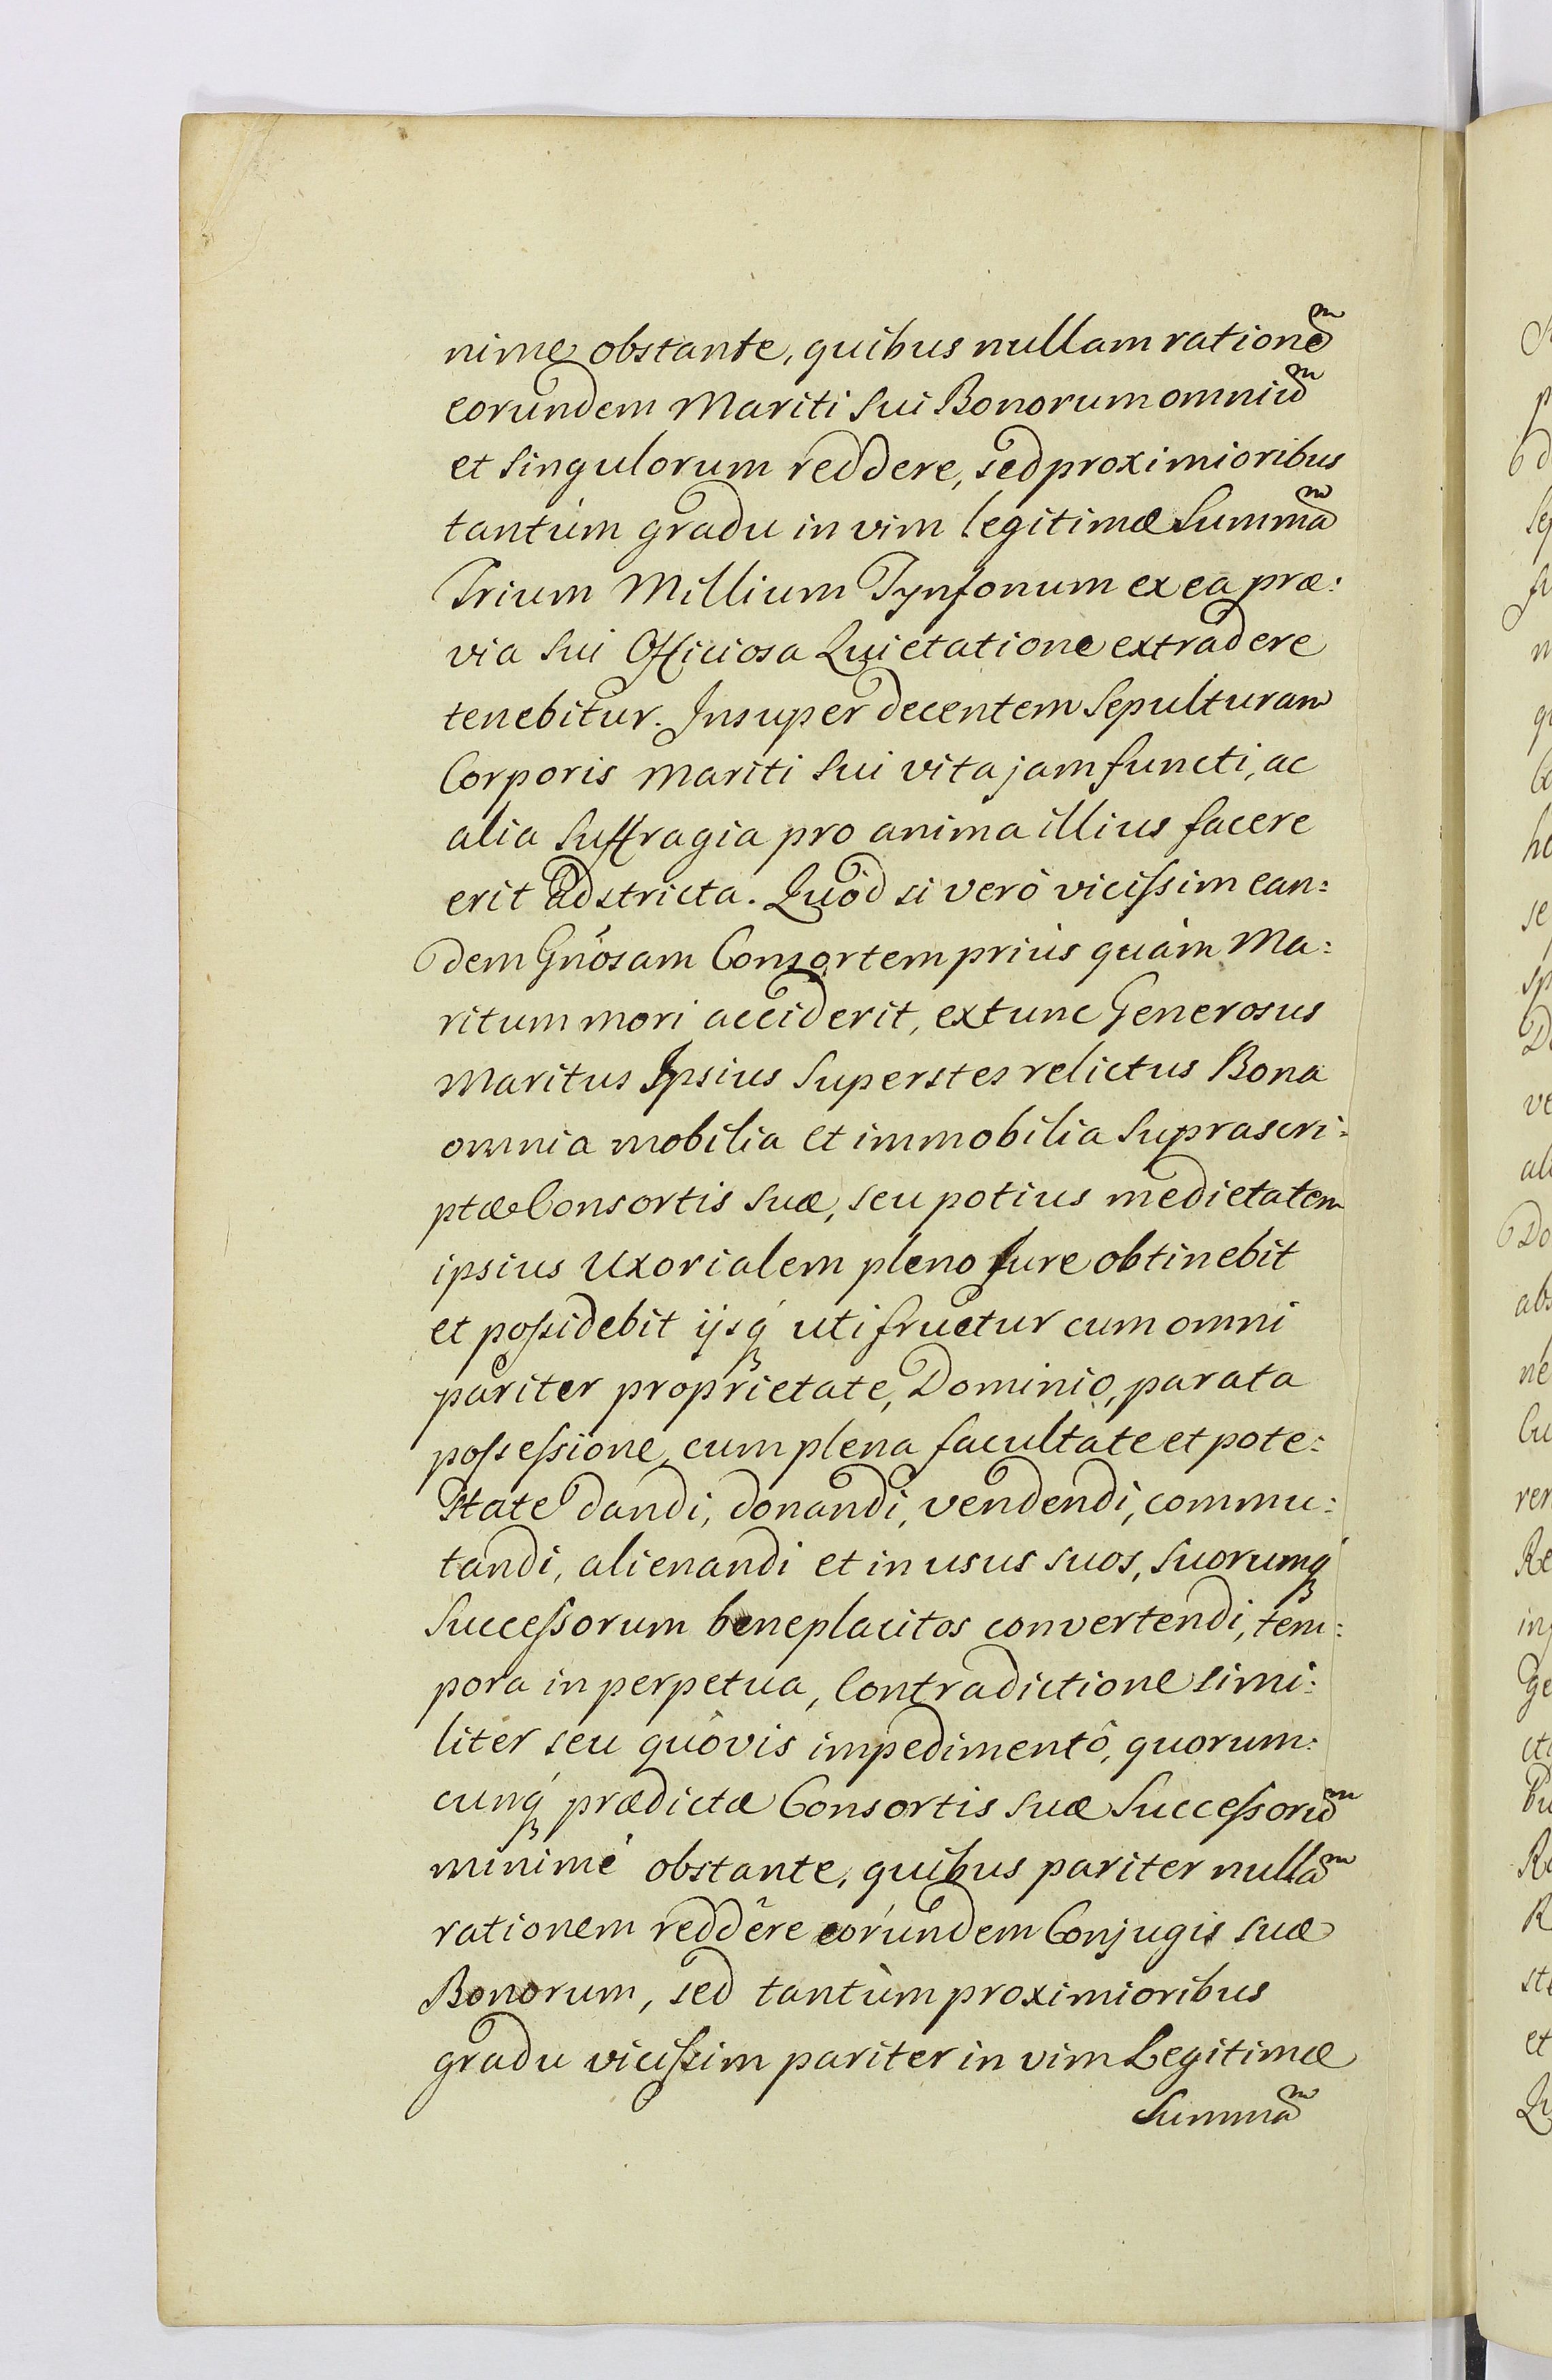 nime obstante, quibus nullam rationeͫ
eorundem Mariti sui Bonorum omniuͫ
et singulorum reddere, sed proximioribus
tantùm gradu in vim legitimæ Summaͫ
Trium Millium Tynfonum ex ea præ:
via sui Officiosa Quietatione extradere
tenebitur. Insuper decentem Sepulturam
Corporis Mariti sui vita jam functi, ac
alia Suffragia pro anima illius facere
erit adstricta. Quòd si verò vicissim ean:
dem Gnosam Consortem priùs quàm Ma:
ritum mori acciderit, extunc Generosus
Maritus Ipsius Superstes relictus Bona
omnia mobilia et immobilia suprascri:
ptæ Consortis suæ, seu potius medietatem
ipsius Uxorialem pleno Jure obtinebit
et possidebit ijsq́ uti fruetur cum omni
pariter proprietate, Dominio, parata
possessione, cum plena facultate et pote:
state dandi, donandi, vendendi, commu:
tandi, alienandi et in usus suos, suorumq́
Successorum beneplacitos convertendi, tem:
pora in perpetua, Contradictione simi:
liter seu quôvis impedimentô, quorum:
cunq́ prædictæ Consortis suæ Successoruͫ
minimè obstante, quibus pariter nullaͫ
rationem reddêre eorundem Conjugis suæ
Bonorum, sed tantùm proximioribus
gradu vicissim pariter in vim Legitimæ
Summaͫ